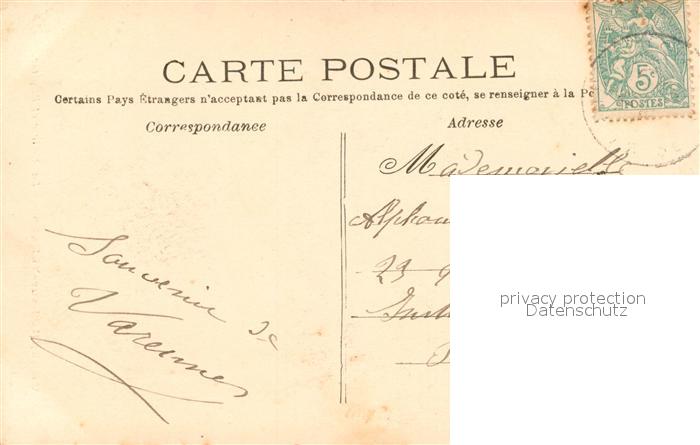 CARTE POSTALE
Certains Pays Étrangers n'acceptant pas la Correspondance de ce coté, se renseigner à la
Correspondance
Adresse
5c
POSTES
Mademoiselle
23
Souvenir de
Varennes
privacy protection
Datenschutz